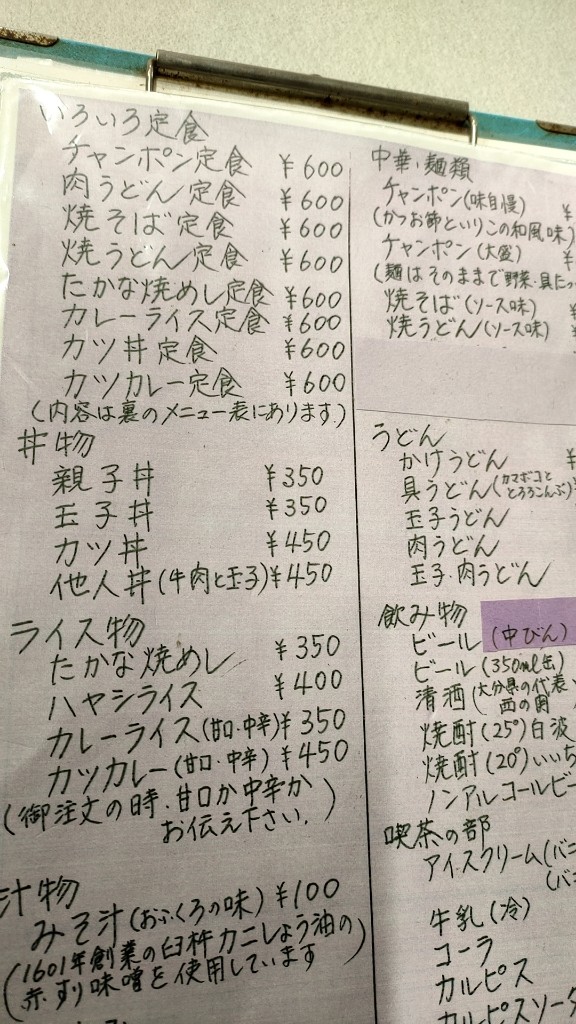 いろいろ定食
チャンポン定食 ¥600
肉うどん定食 ¥600
焼そば定食 ¥600
焼うどん定食 ¥600
たかな焼めし定食 ¥600
カレーライス定食 ¥600
カツ丼定食 ¥600
カツカレー定食 ¥600
(内容は裏のメニュー表にあります)
丼物
親子丼 ¥350
玉子丼 ¥350
カツ丼 ¥450
他人丼(牛肉と玉子)¥450
ライス物
たかな焼めし ¥350
ハヤシライス ¥400
カレーライス(甘口・中辛)¥350
カツカレー(甘口・中辛)¥450
(御注文の時、甘口か中辛か
お伝え下さい。)
汁物
みそ汁(おふくろの味)¥100
(1601年創業の臼杵カニしょう油の
赤すり味噌を使用しています)
中華・麺類
チャンポン(味自慢) ¥
(かつお節といりこの和風味)
チャンポン(大盛) ¥
(麺はそのままで野菜・具たっ
焼そば(ソース味) ¥
焼うどん(ソース味) ¥
うどん
かけうどん ¥
具うどん(カマボコと
とろろこんぶ)¥
玉子うどん
肉うどん
玉子・肉うどん
飲み物
ビール(中びん)
ビール(350ml缶)
清酒(大分県の代表
西の関)
焼酎(25°)白波
焼酎(20°)いいち
ノンアルコールビー
喫茶の部
アイスクリーム(バニ
(バニ
牛乳(冷)
コーラ
カルピス
カルピスソーダ